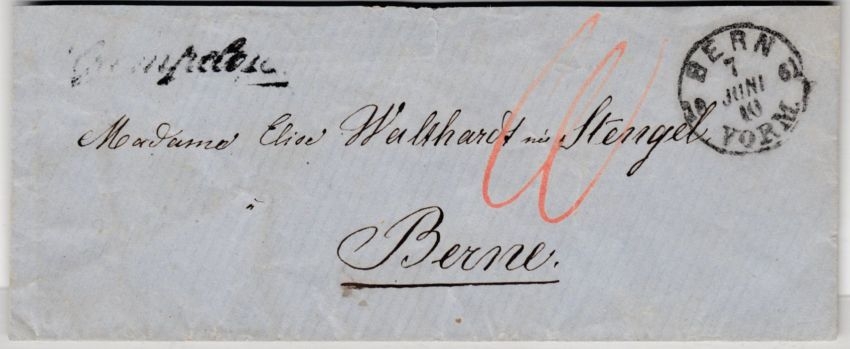 BERN
18 61
7
JUNI
10
VORM.
Madame Elise Walthardt née Stengel
Berne.